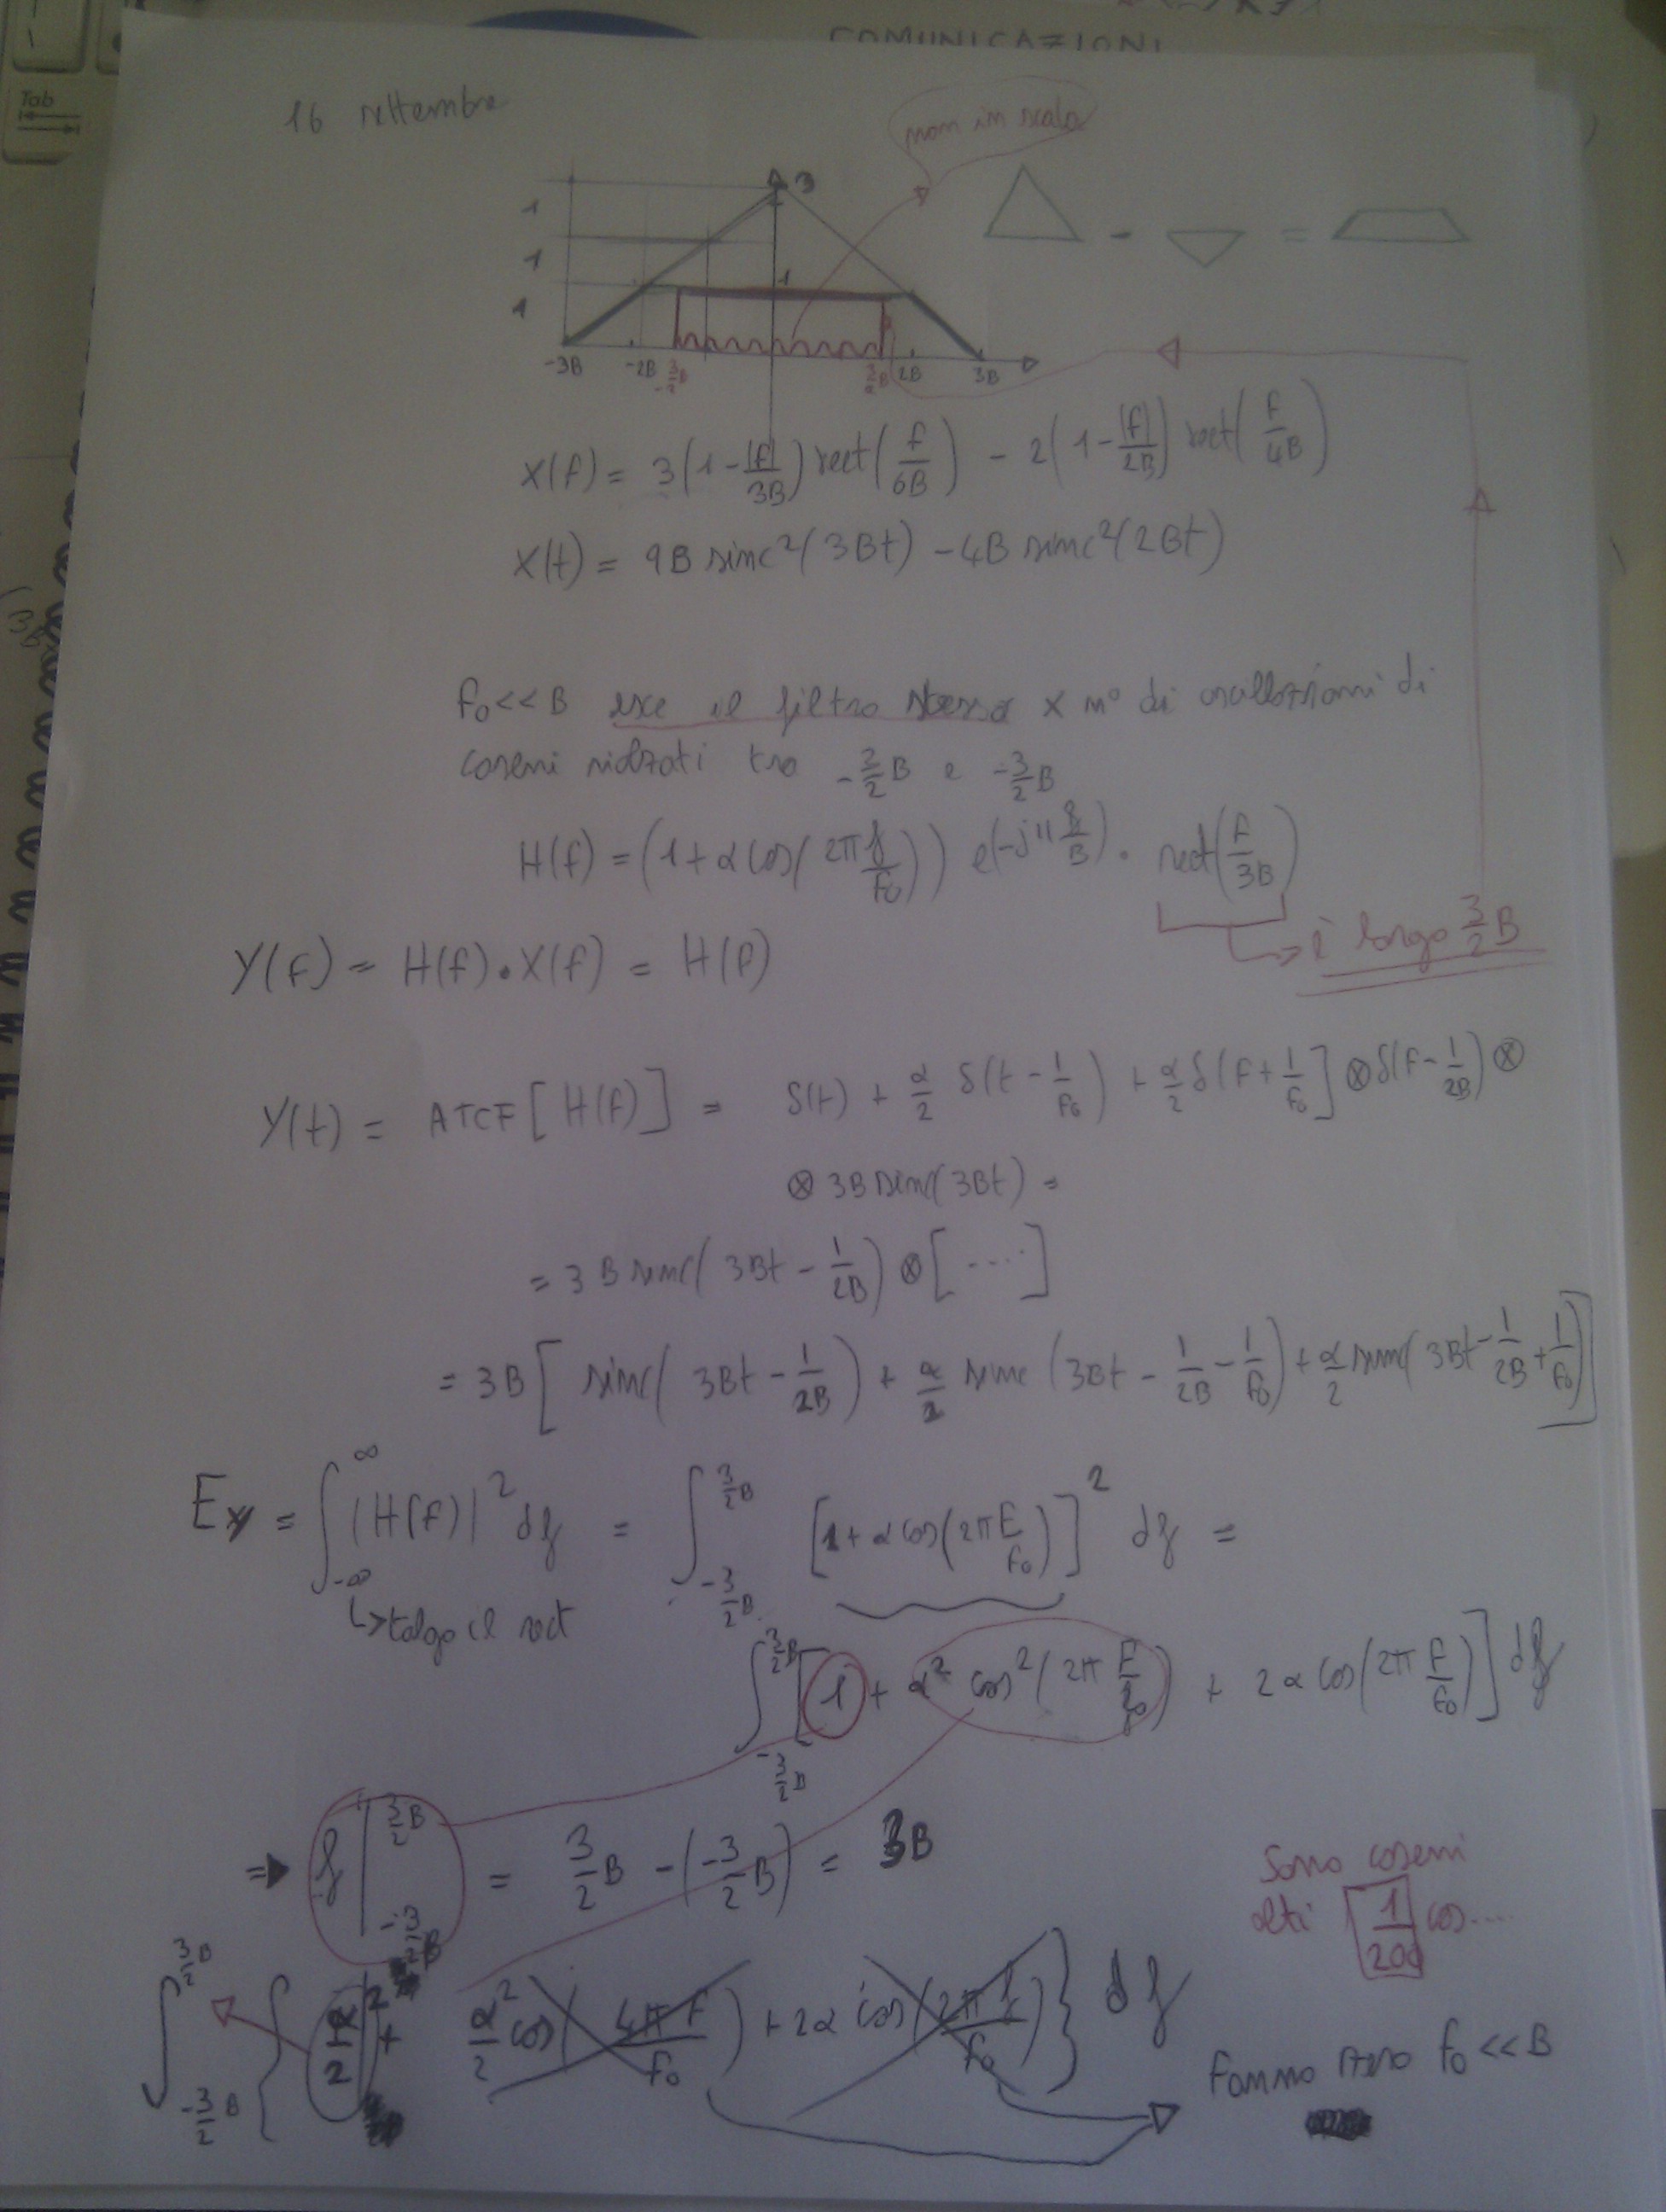 Tab
COMUNICAZIONI
16 settembre
non in scala
3
1
1
1
1
- =
-3B -2B -3/2 B 3/2 B 2B 3B
X(f) = 3(1-|f|/3B) rect(f/6B) - 2(1-|f|/2B) rect(f/4B)
X(t) = 9B sinc²(3Bt) - 4B sinc²(2Bt)
f₀<<B esce il filtro stesso x n° di oscillazioni di
coseni rialzati tra -3/2 B e -3/2 B
H(f) = (1+α cos(2π f/f₀)) e(-jπ f/B) · rect(f/3B)
è largo 3/2 B
Y(f) = H(f)·X(f) = H(f)
Y(t) = ATCF[H(f)] = δ(t) + α/2 δ(t - 1/f₀) + α/2 δ(f + 1/f₀] ⊗ δ(f - 1/2B) ⊗
⊗ 3B sinc(3Bt) =
= 3B sinc(3Bt - 1/2B) ⊗ [....]
= 3B[ sinc(3Bt - 1/2B) + α/2 sinc(3Bt - 1/2B - 1/f₀) + α/2 sinc(3Bt - 1/2B + 1/f₀)]
Ey = ∫-∞ ∞ |H(f)|² df = ∫-3/2 B 3/2 B [1+α cos(2π F/f₀)]² df =
↳ tolgo il rect
∫-3/2 B 3/2 B [1 + α² cos²(2π F/f₀) + 2α cos(2π F/f₀)] df
⇒ f | 3/2 B -3/2 B = 3/2 B - (-3/2 B) = 3B
Sono coseni
alti 1/200 cos....
∫-3/2 B 3/2 B { α²/2 + α²/2 cos(4π F/f₀) + 2α cos(2π f/f₀) } df
Fanno zero f₀<<B